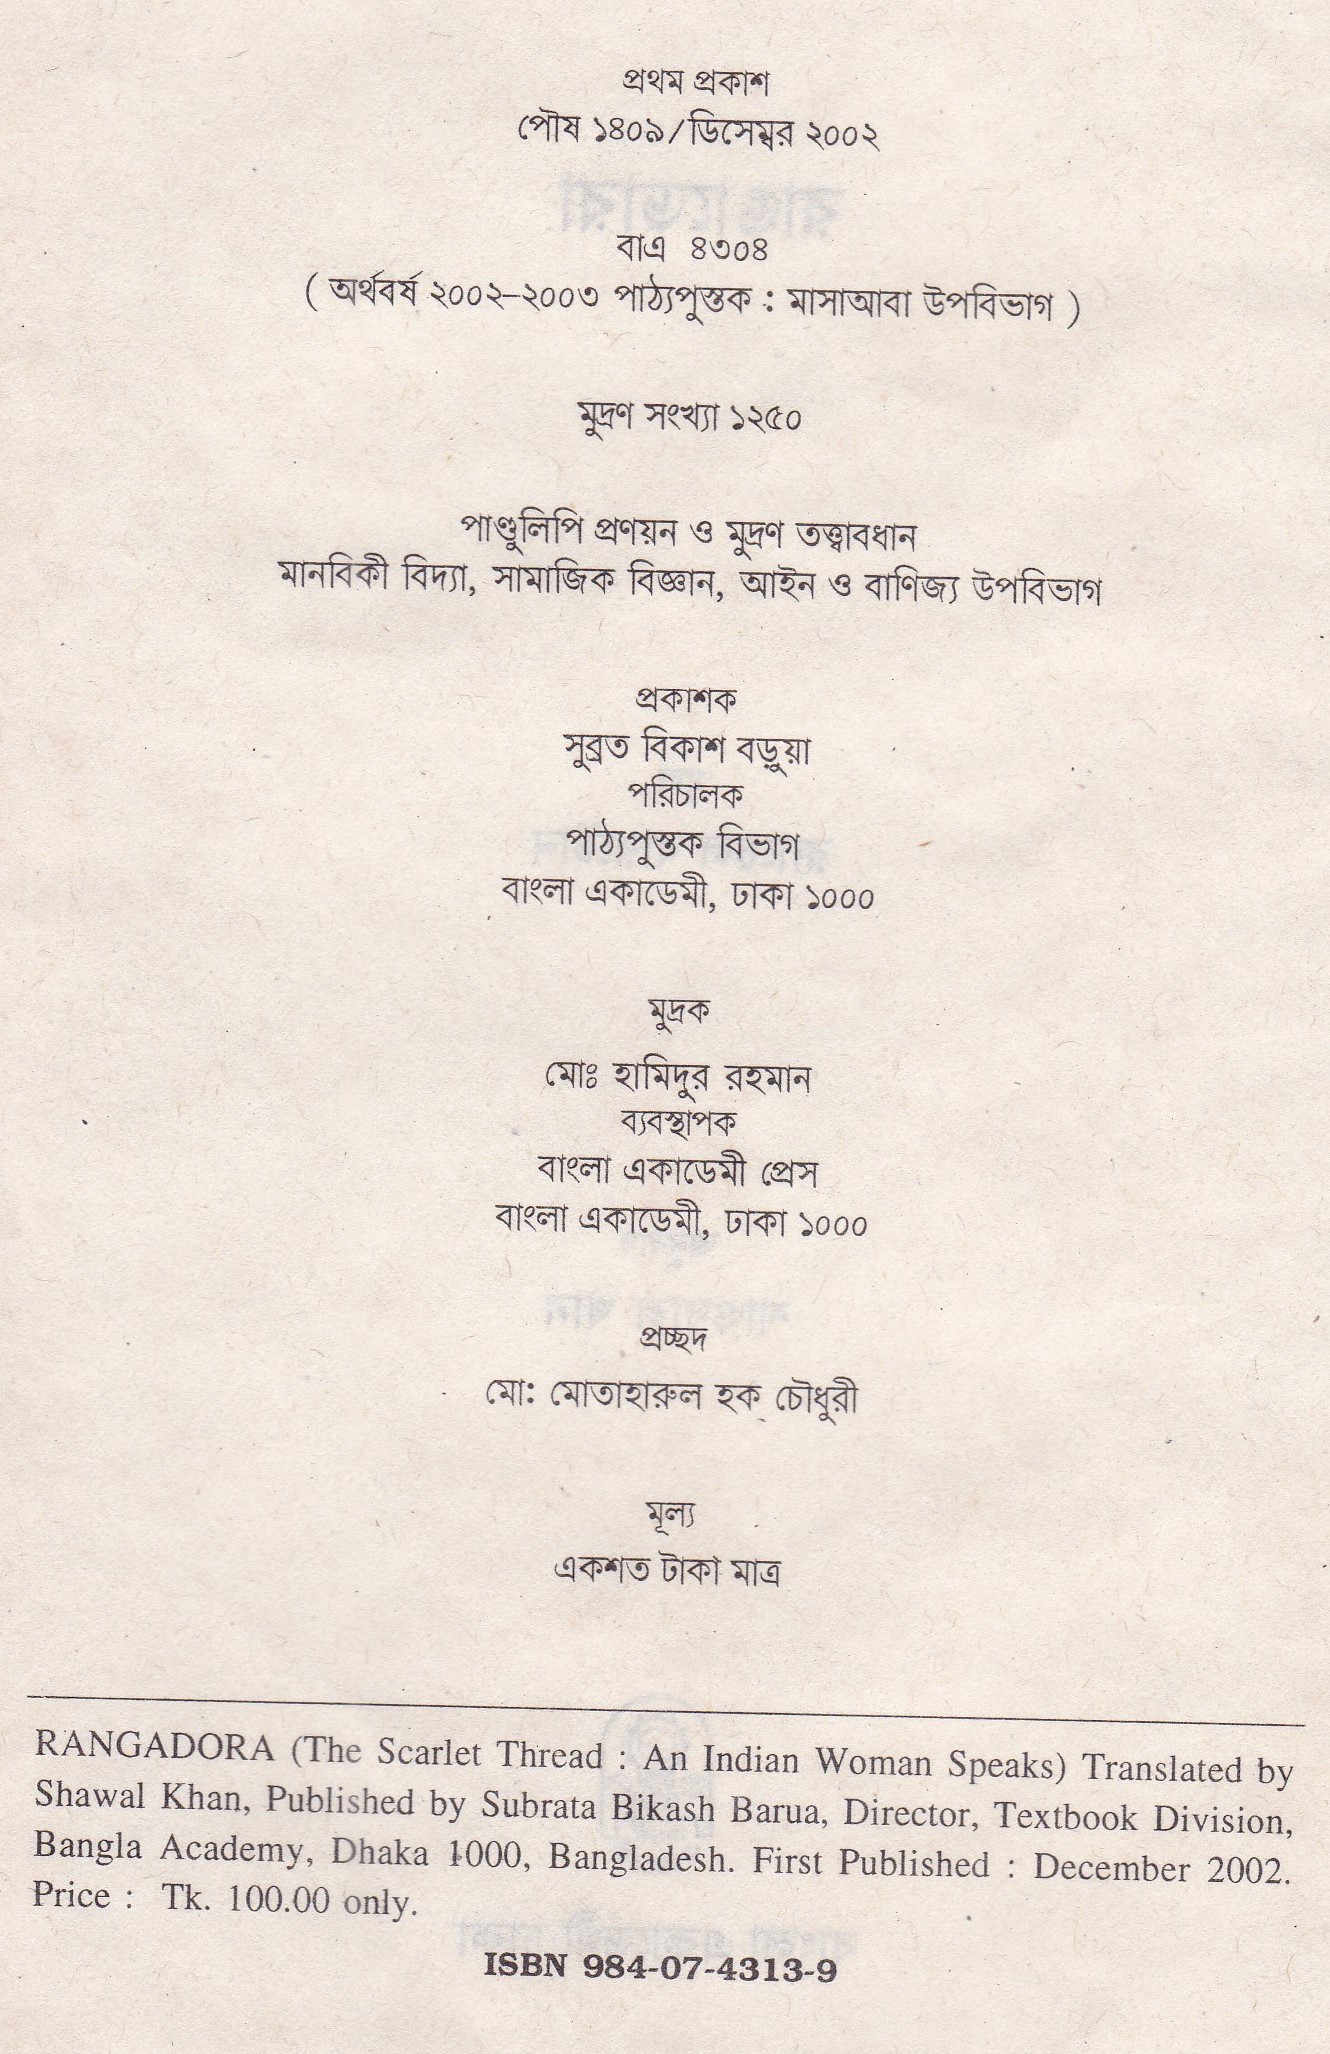 প্রথম প্রকাশ
পৌষ ১৪০৯/ডিসেম্বর ২০০২
বাএ ৪৩০৪
( অর্থবর্ষ ২০০২–২০০৩ পাঠ্যপুস্তক : মাসাআবা উপবিভাগ )
মুদ্রণ সংখ্যা ১২৫০
পাণ্ডুলিপি প্রণয়ন ও মুদ্রণ তত্ত্বাবধান
মানবিকী বিদ্যা, সামাজিক বিজ্ঞান, আইন ও বাণিজ্য উপবিভাগ
প্রকাশক
সুব্রত বিকাশ বড়ুয়া
পরিচালক
পাঠ্যপুস্তক বিভাগ
বাংলা একাডেমী, ঢাকা ১০০০
মুদ্রক
মোঃ হামিদুর রহমান
ব্যবস্থাপক
বাংলা একাডেমী প্রেস
বাংলা একাডেমী, ঢাকা ১০০০
প্রচ্ছদ
মো: মোতাহারুল হক চৌধুরী
মূল্য
একশত টাকা মাত্র
RANGADORA (The Scarlet Thread : An Indian Woman Speaks) Translated by
Shawal Khan, Published by Subrata Bikash Barua, Director, Textbook Division,
Bangla Academy, Dhaka 1000, Bangladesh. First Published : December 2002.
Price : Tk. 100.00 only.
ISBN 984-07-4313-9